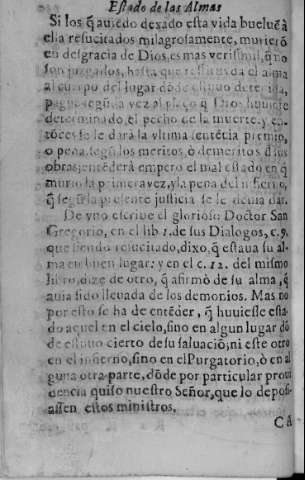 Estado de las Almas
Si los q̃ auiẽdo dexado esta vida bueluẽ à
ella resucitados milagrosamente, murierõ
en desgracia de Dios, es mas verisimil, q̃ no
son juzgados, hasta que restituyda el alma
al cuerpo del lugar dõde estuuo detenida,
pague segũda vez al plaço q̃ Dios huuiere
determinado, el pecho de la muerte, y en-
tõces se le darà la vltima sentẽcia premio,
o pena, segũ los meritos, ò demeritos d sus
obras; entẽderà empero el mal estado en q̃
murio la primera vez, y la pena del infierno,
q̃ segũ la presente justicia se le deuia dar.
De vno escriue el glorioso Doctor San
Gregorio, en el lib 1. de sus Dialogos, c. 9.
que siendo resucitado, dixo, q̃ estaua su al-
ma en buen lugar: y en el c. 12. del mismo
libro, dize de otro, q̃ afirmò de su alma, q̃
auia sido lleuada de los demonios. Mas no
por esto se ha de entẽder, q̃ huuiesse esta-
do aquel en el cielo, sino en algun lugar dõ
de estuuo cierto de su saluaciõ, ni este otro
en el infierno, sino en el Purgatorio, ò en al
guna otra parte, dõde por particular proui
dencia quiso nuestro Señor, que lo depos-
assen estos ministros.